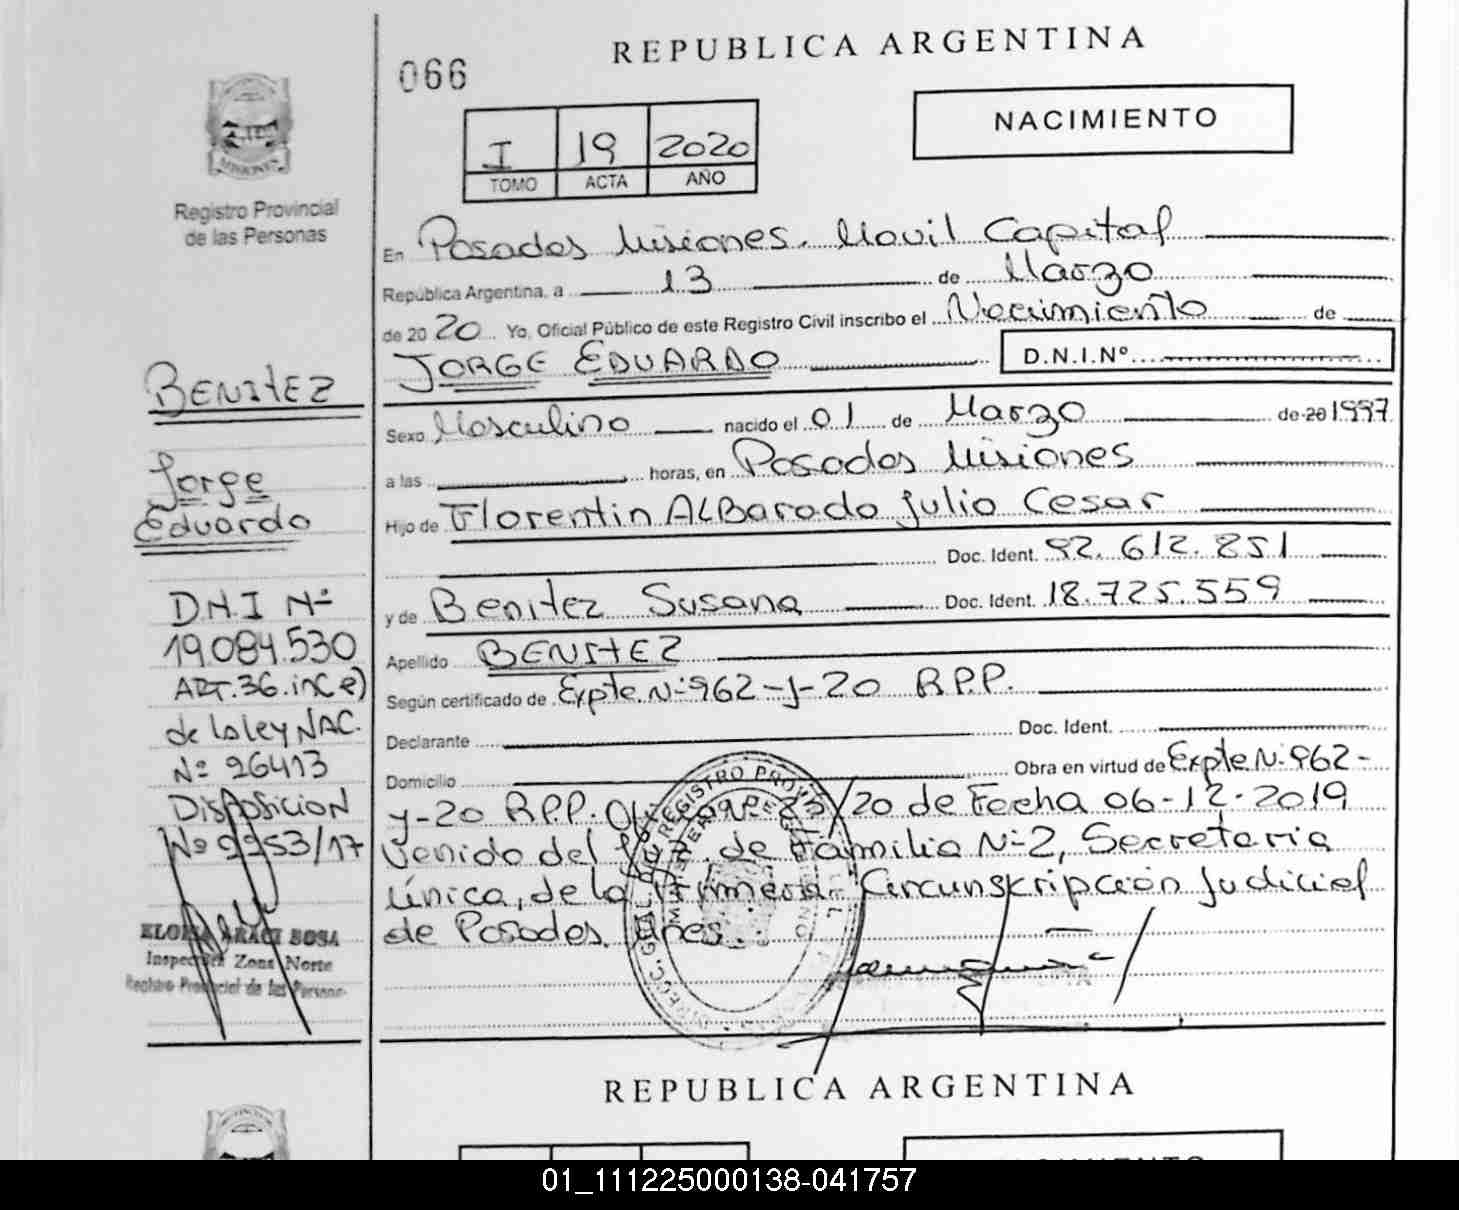 REPUBLICA ARGENTINA
066
NACIMIENTO
I 19 2020
TOMO ACTA AÑO
Registro Provincial
de las Personas
En Posadas Misiones. Movil Capital
República Argentina, a 13 de Marzo
de 2020 Yo, Oficial Público de este Registro Civil inscribo el Nacimiento de
JORGE EDUARDO D.N.I.Nº
Sexo Masculino nacido el 01 de Marzo de 20 1997
a las horas, en Posadas Misiones
Hijo de Florentin ALBarado Julio Cesar
Doc. Ident. 92.612.851
y de Benitez Susana Doc. Ident. 18.725.559
Apellido BENITEZ
Según certificado de Expte.Nº962-J-20 R.P.P.
Declarante Doc. Ident.
Domicilio Obra en virtud de Expte Nº962-
y-20 R.P.P. /20 de Fecha 06-12-2019
Venido del Juz. de Familia Nº2, Secretaria
Única, de la Primera Circunskripcion Judicial
de Posadas.
BENITEZ
Jorge
Eduardo
D.N.I Nº
19.084.530
ART.36.inc e)
de la ley NAC.
Nº 26413
Disposicion
Nº 2953/17
ELOISA ARACI SOSA
Inspectora Zona Norte
Registro Provincial de las Personas
REPUBLICA ARGENTINA
01_111225000138-041757